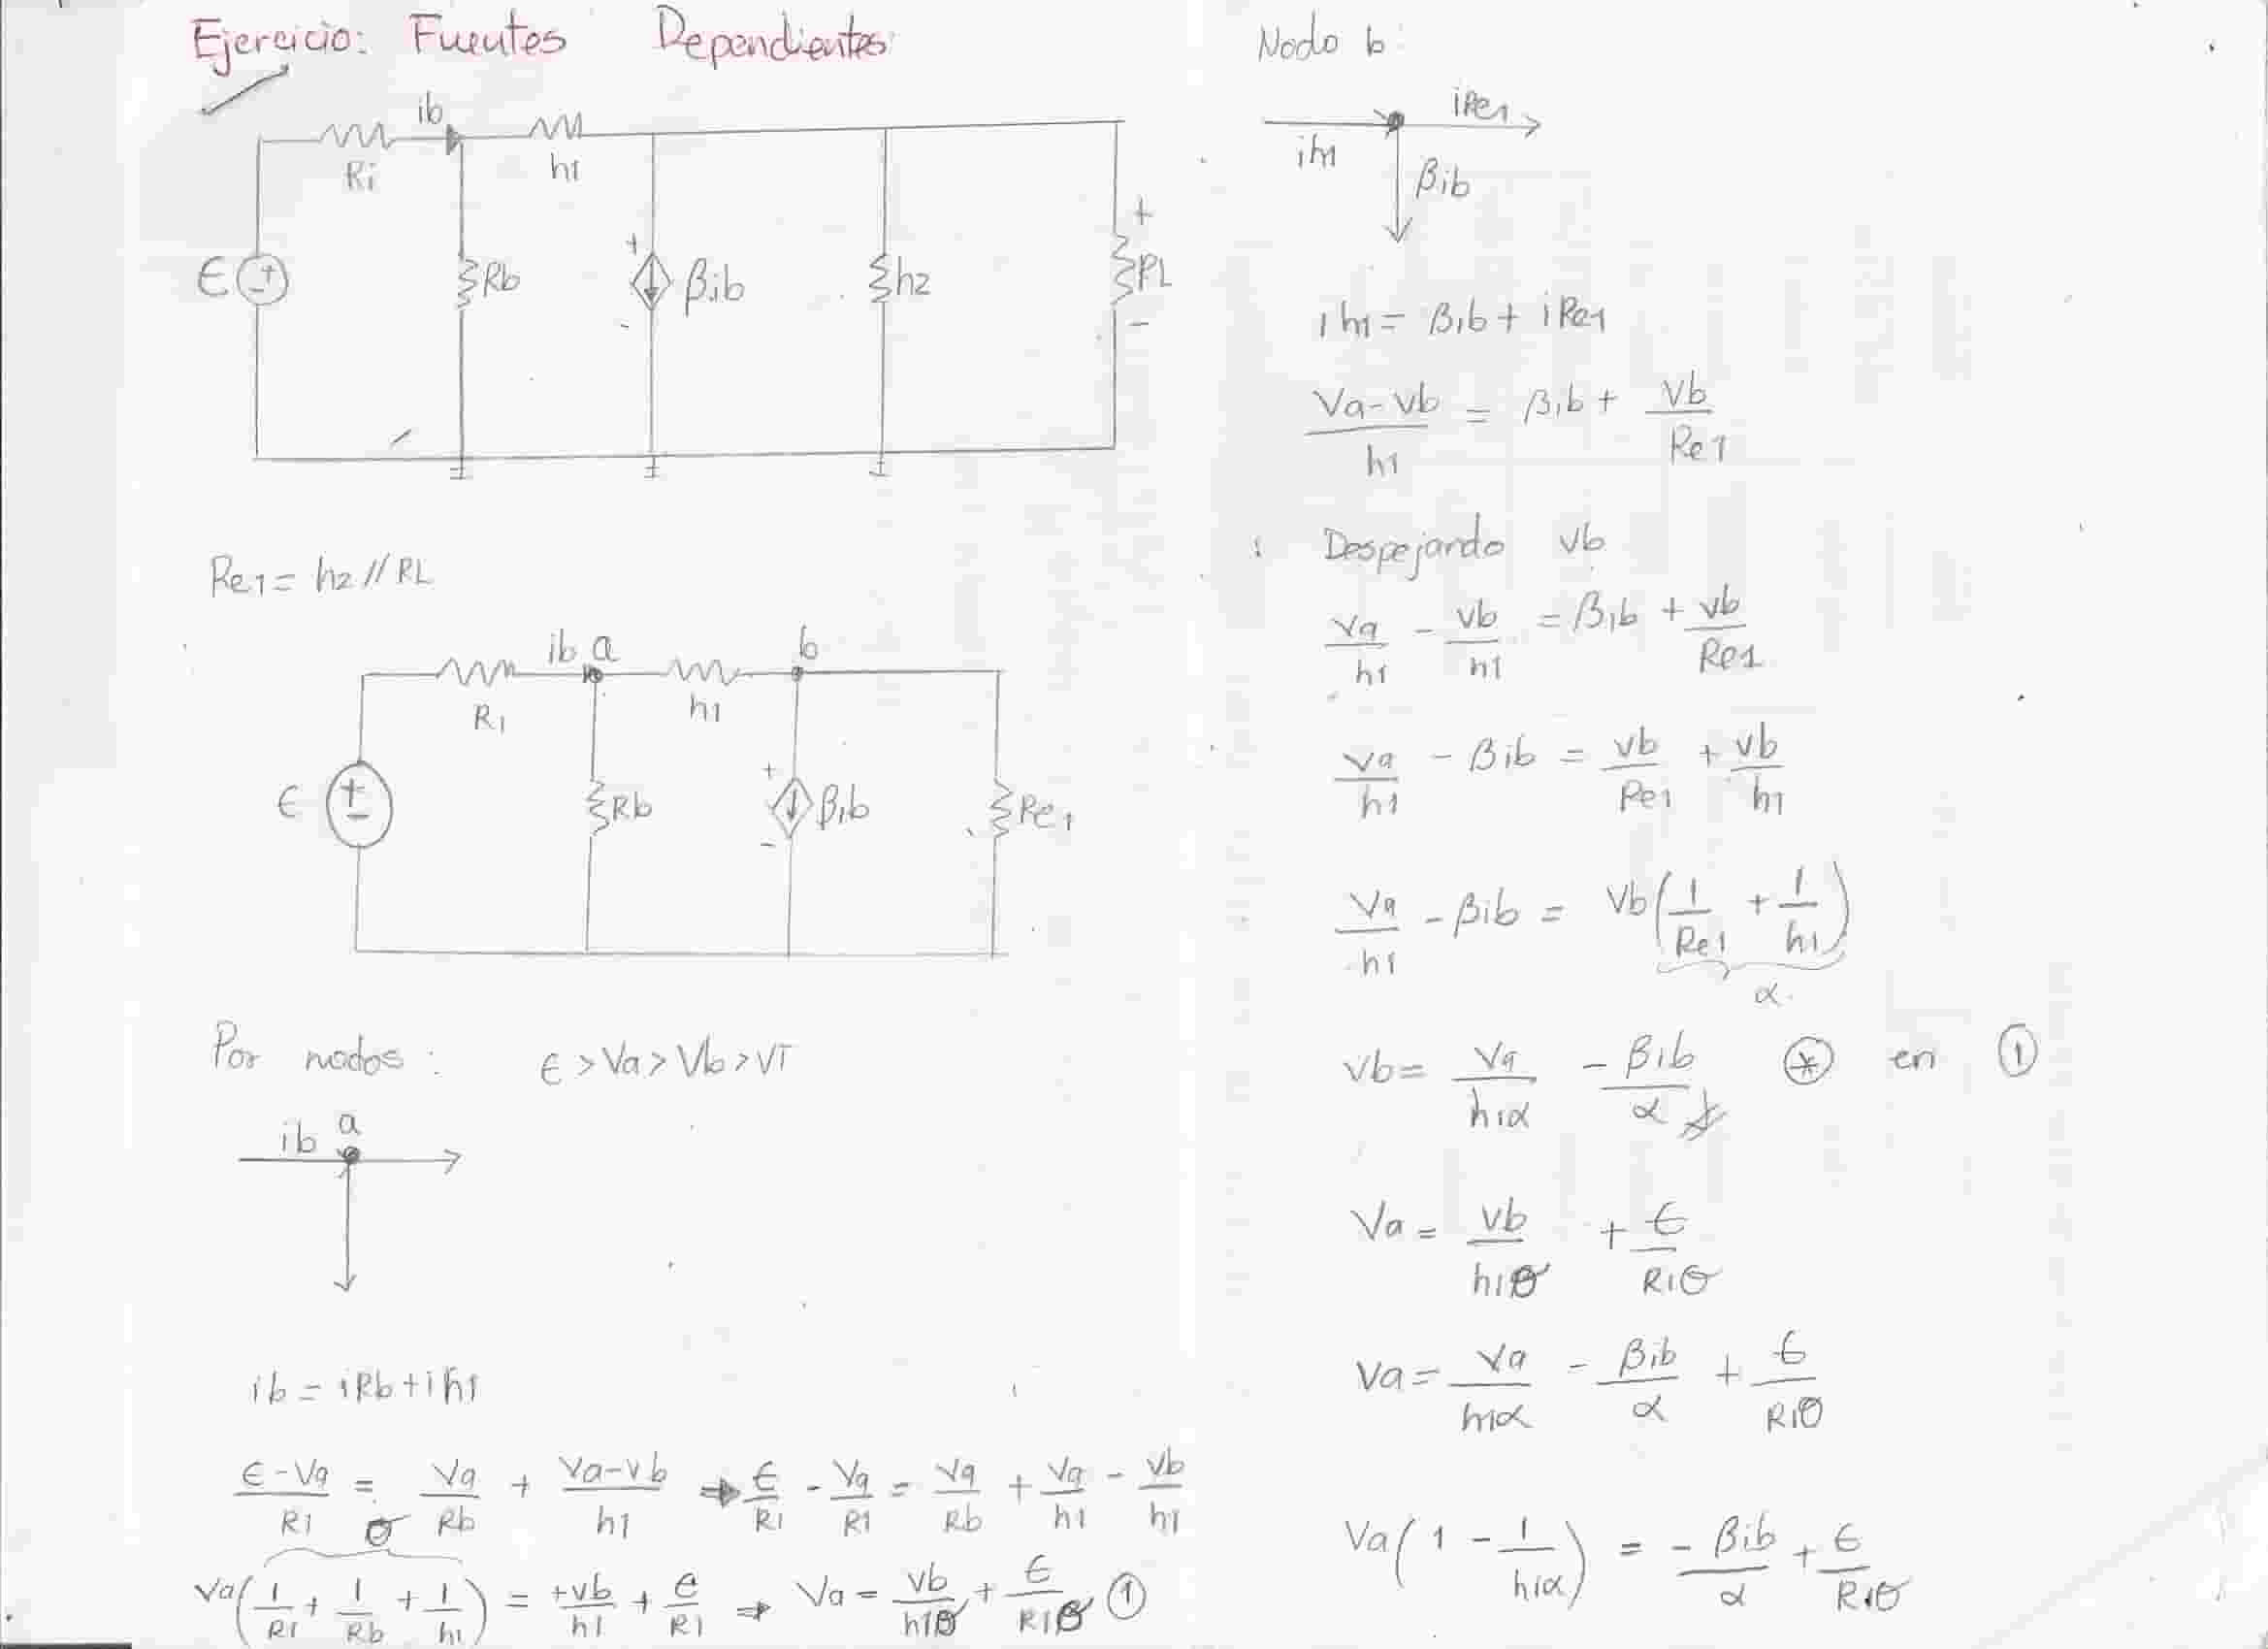 Ejercicio: Fuentes Dependientes
ib
Ri h1
ϵ + - Rb + - βib h2 + RL -
Re1 = h2 // RL
ib a b
R1 h1
ϵ + - Rb + - βib Re1
Por nodos: ϵ > Va > Vb > VT
ib a
ib = iRb + ih1
(ϵ - Va)/R1 = Va/Rb + (Va - vb)/h1 ⇒ ϵ/R1 - Va/R1 = Va/Rb + Va/h1 - vb/h1
θ
Va(1/R1 + 1/Rb + 1/h1) = +vb/h1 + ϵ/R1 ⇒ Va = vb/h1θ + ϵ/R1θ ①
Nodo b:
ih1 iRe1
βib
ih1 = βib + iRe1
(Va - vb)/h1 = βib + Vb/Re1
Despejando vb
Va/h1 - vb/h1 = βib + vb/Re1
Va/h1 - βib = vb/Re1 + vb/h1
Va/h1 - βib = Vb(1/Re1 + 1/h1)
α
vb = Va/h1α - βib/α ⊛ en ①
Va = vb/h1θ + ϵ/R1θ
Va = Va/h1α - βib/α + ϵ/R1θ
Va(1 - 1/h1α) = - βib/α + ϵ/R1θ